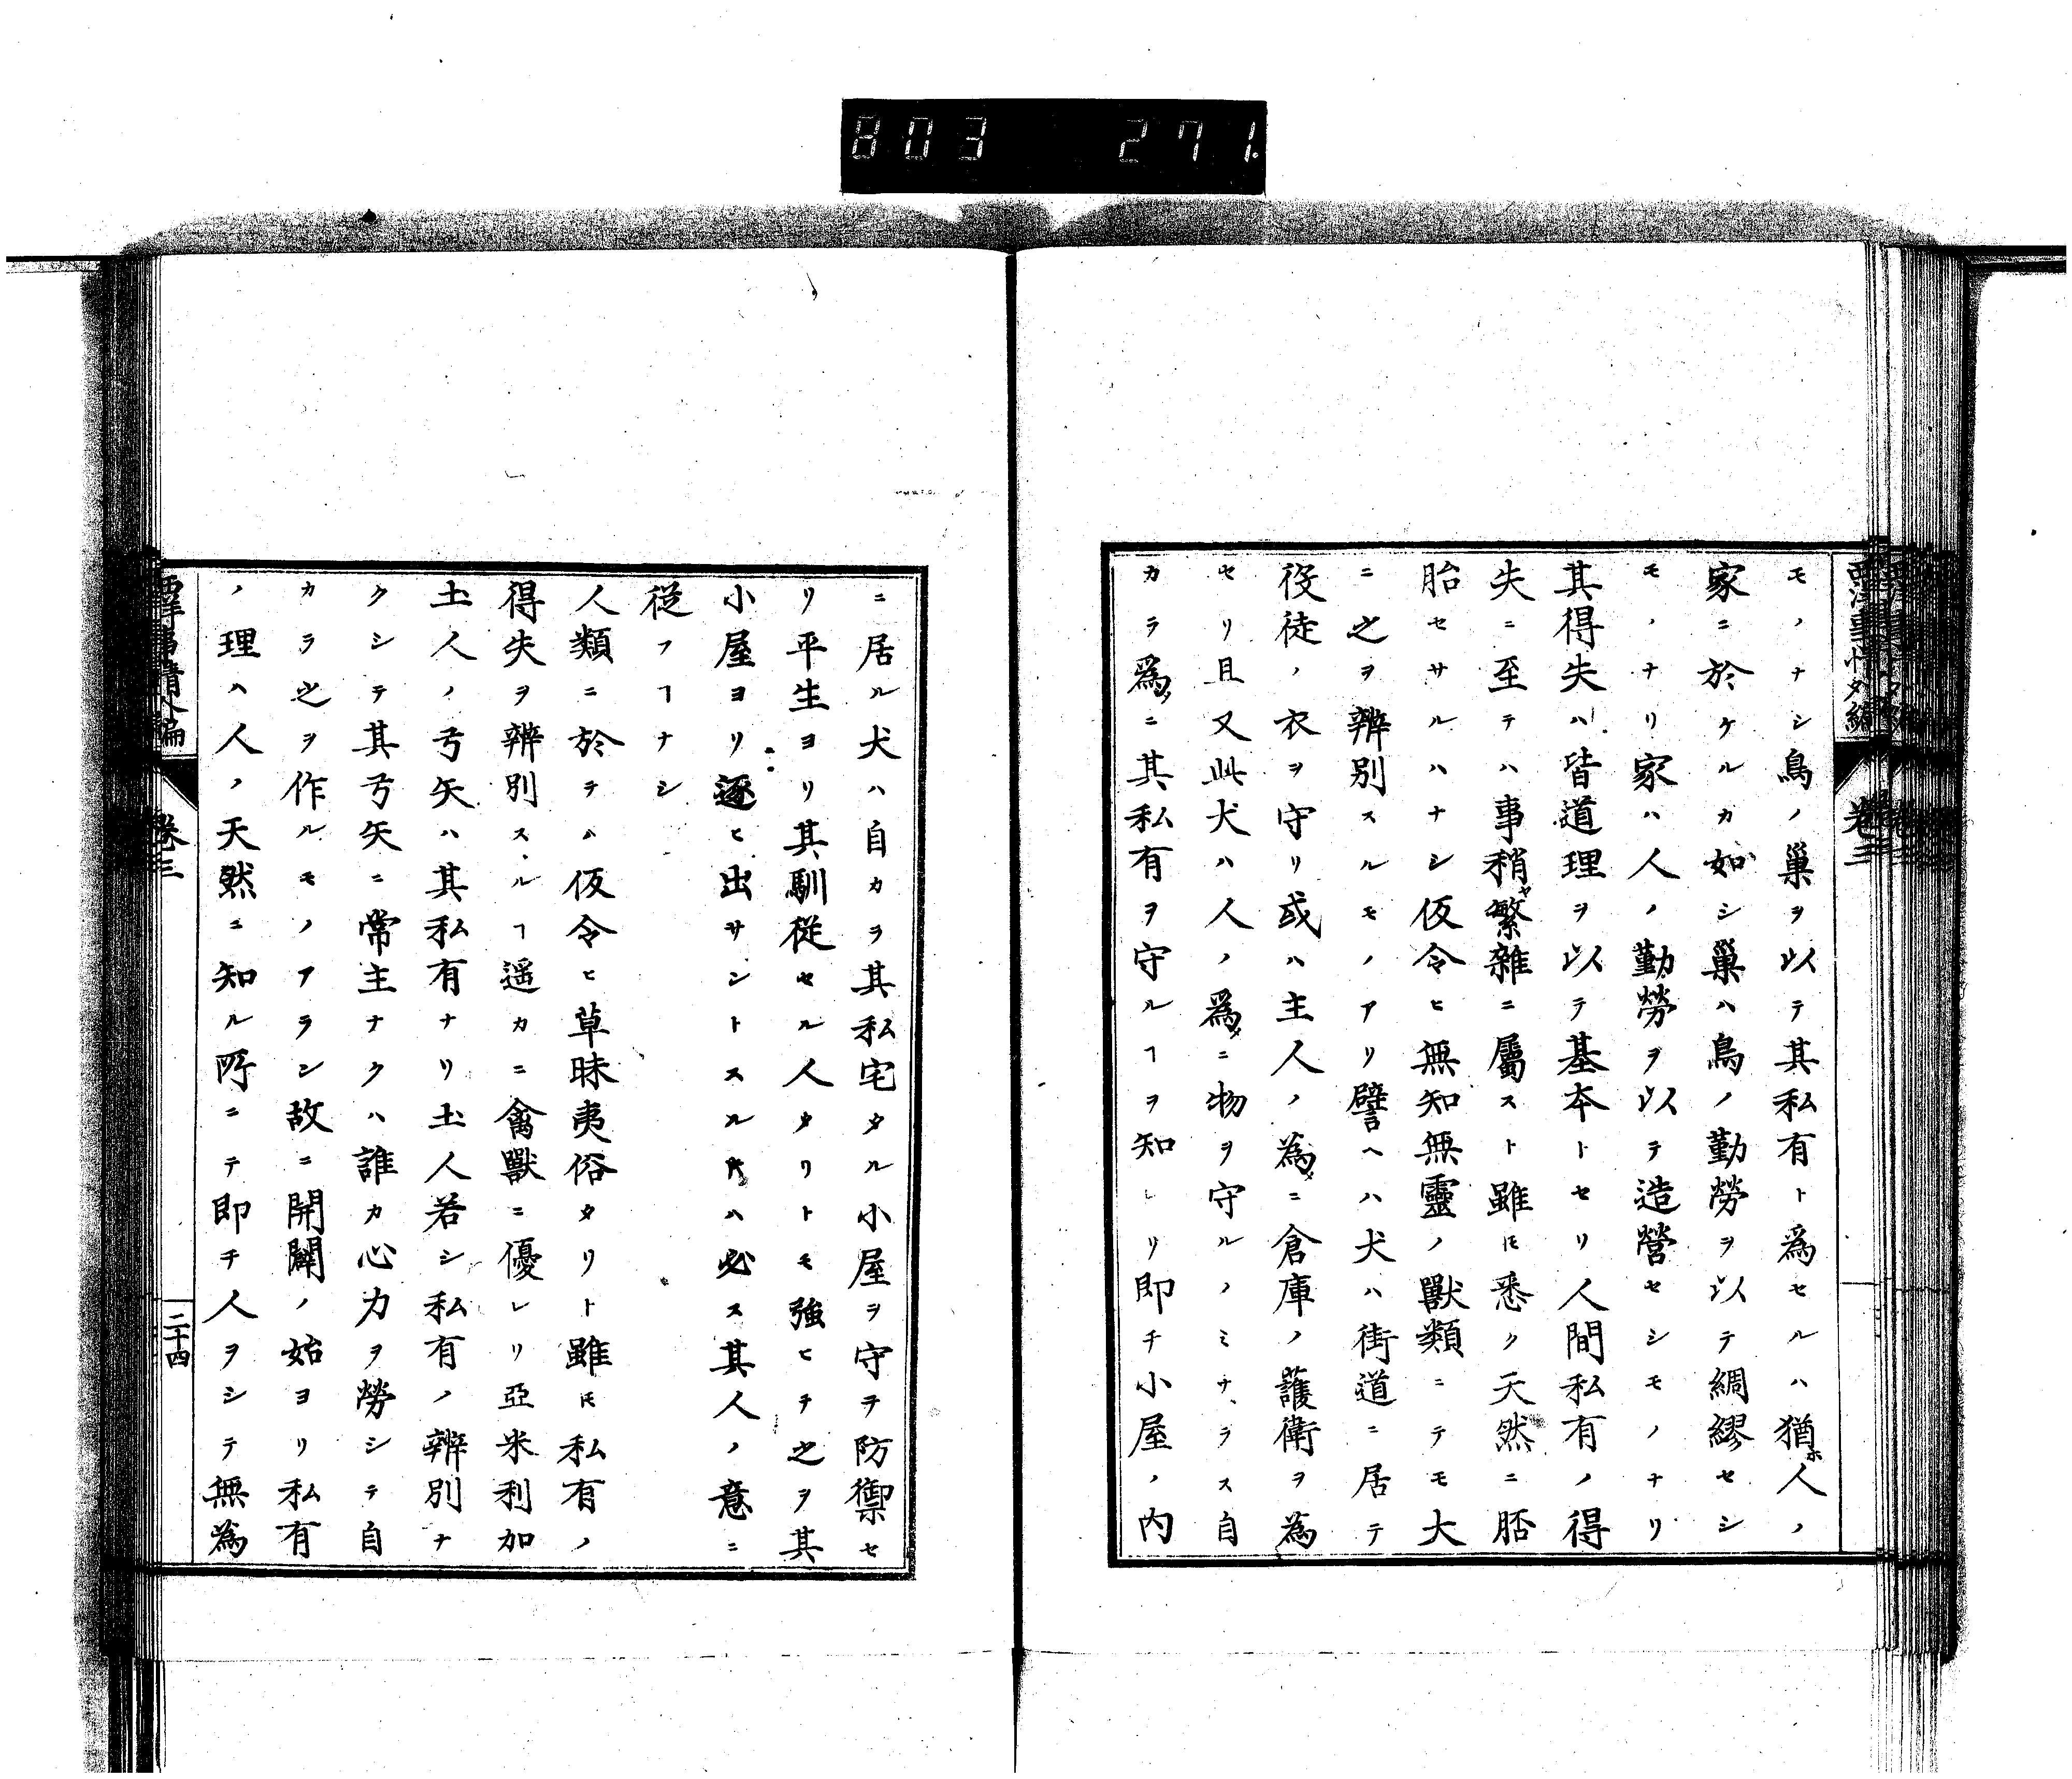 803 271.
西洋事情外編
卷三
モノナシ鳥ノ巢ヲ以テ其私有ト爲セルハ猶ホ人ノ
家ニ於ケルカ如シ巢ハ鳥ノ勤勞ヲ以テ綢繆セシ
モノナリ家ハ人ノ勤勞ヲ以テ造營セシモノナリ
其得失ハ皆道理ヲ以テ基本トセリ人間私有ノ得
失ニ至テハ事稍ヤ繁雜ニ屬スト雖𪜈悉ク天然ニ胚
胎セサルハナシ仮令ヒ無知無靈ノ獸類ニテモ大
ニ之ヲ辨別スルモノアリ譬ヘハ犬ハ街道ニ居テ
役徒ノ衣ヲ守リ或ハ主人ノ為メニ倉庫ノ護衛ヲ為
セリ且又此犬ハ人ノ爲メニ物ヲ守ルノミナラス自
カラ爲メニ其私有ヲ守ルヿヲ知レリ即チ小屋ノ内
ニ居ル犬ハ自カラ其私宅タル小屋ヲ守テ防禦セ
リ平生ヨリ其馴從セル人タリトモ強ヒテ之ヲ其
小屋ヨリ逐ヒ出サントスル𪜈ハ必ス其人ノ意ニ
從フヿナシ
人類ニ於テハ仮令ヒ草昧夷俗タリト雖𪜈私有ノ
得失ヲ辨別スルヿ遥カニ禽獸ニ優レリ亞米利加
土人ノ弓矢ハ其私有ナリ土人若シ私有ノ辨別ナ
クシテ其弓矢ニ常主ナクハ誰カ心力ヲ勞シテ自
カラ之ヲ作ルモノアラン故ニ開闢ノ始ヨリ私有
ノ理ハ人ノ天然ニ知ル所ニテ即チ人ヲシテ無為
西洋事情外編
卷三
二十四